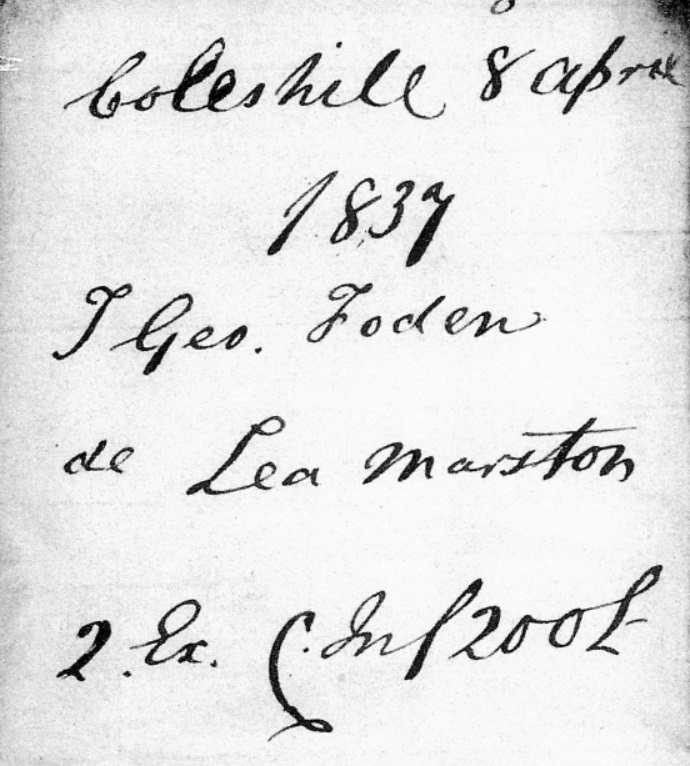 Coleshill 8 April
1837
T Geo. Foden
de Lea Marston
2. Ex. C. Inf 200£